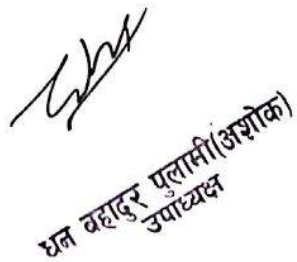 धन वहादुर पुलामी(अशोक)
उपाध्यक्ष